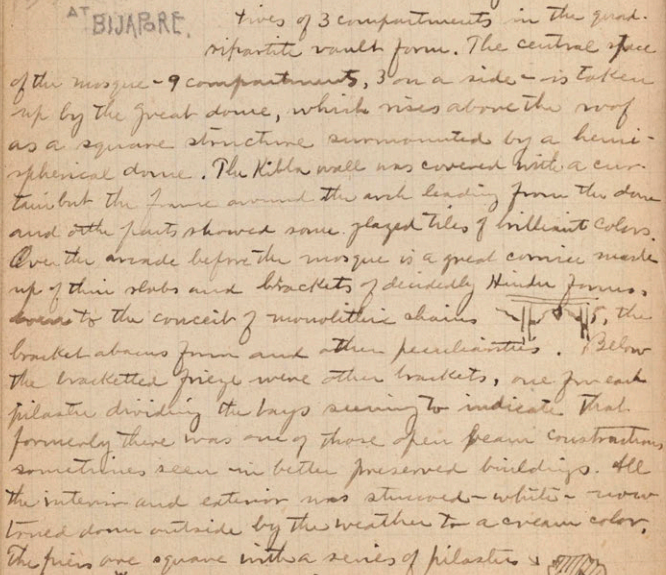 AT BIJAPORE.
tives of 3 compartments in the quad-
ripartite vault form. The central space
of the mosque - 9 compartments, 3 on a side - is taken
up by the great dome, which rises above the roof
as a square structure surmounted by a hemi-
spherical dome. The Kibla wall was covered with a cur-
tain but the frame around the arch leading from the dome
and other parts showed some glazed tiles of brilliant colors.
Over the arcade before the mosque is a great cornice made
up of thin slabs and brackets of decidedly Hindu forms,
to the conceit of monolithic chains, the
bracket abacus form and other peculiarities. Below
the bracketted frieze were other brackets, one for each
pilaster dividing the bays seeming to indicate that
formerly there was one of those open beam constructions
sometimes seen in better preserved buildings. All
the interior and exterior was stuccoed - white - now
toned down outside by the weather to a cream color.
The piers are square with a series of pilasters